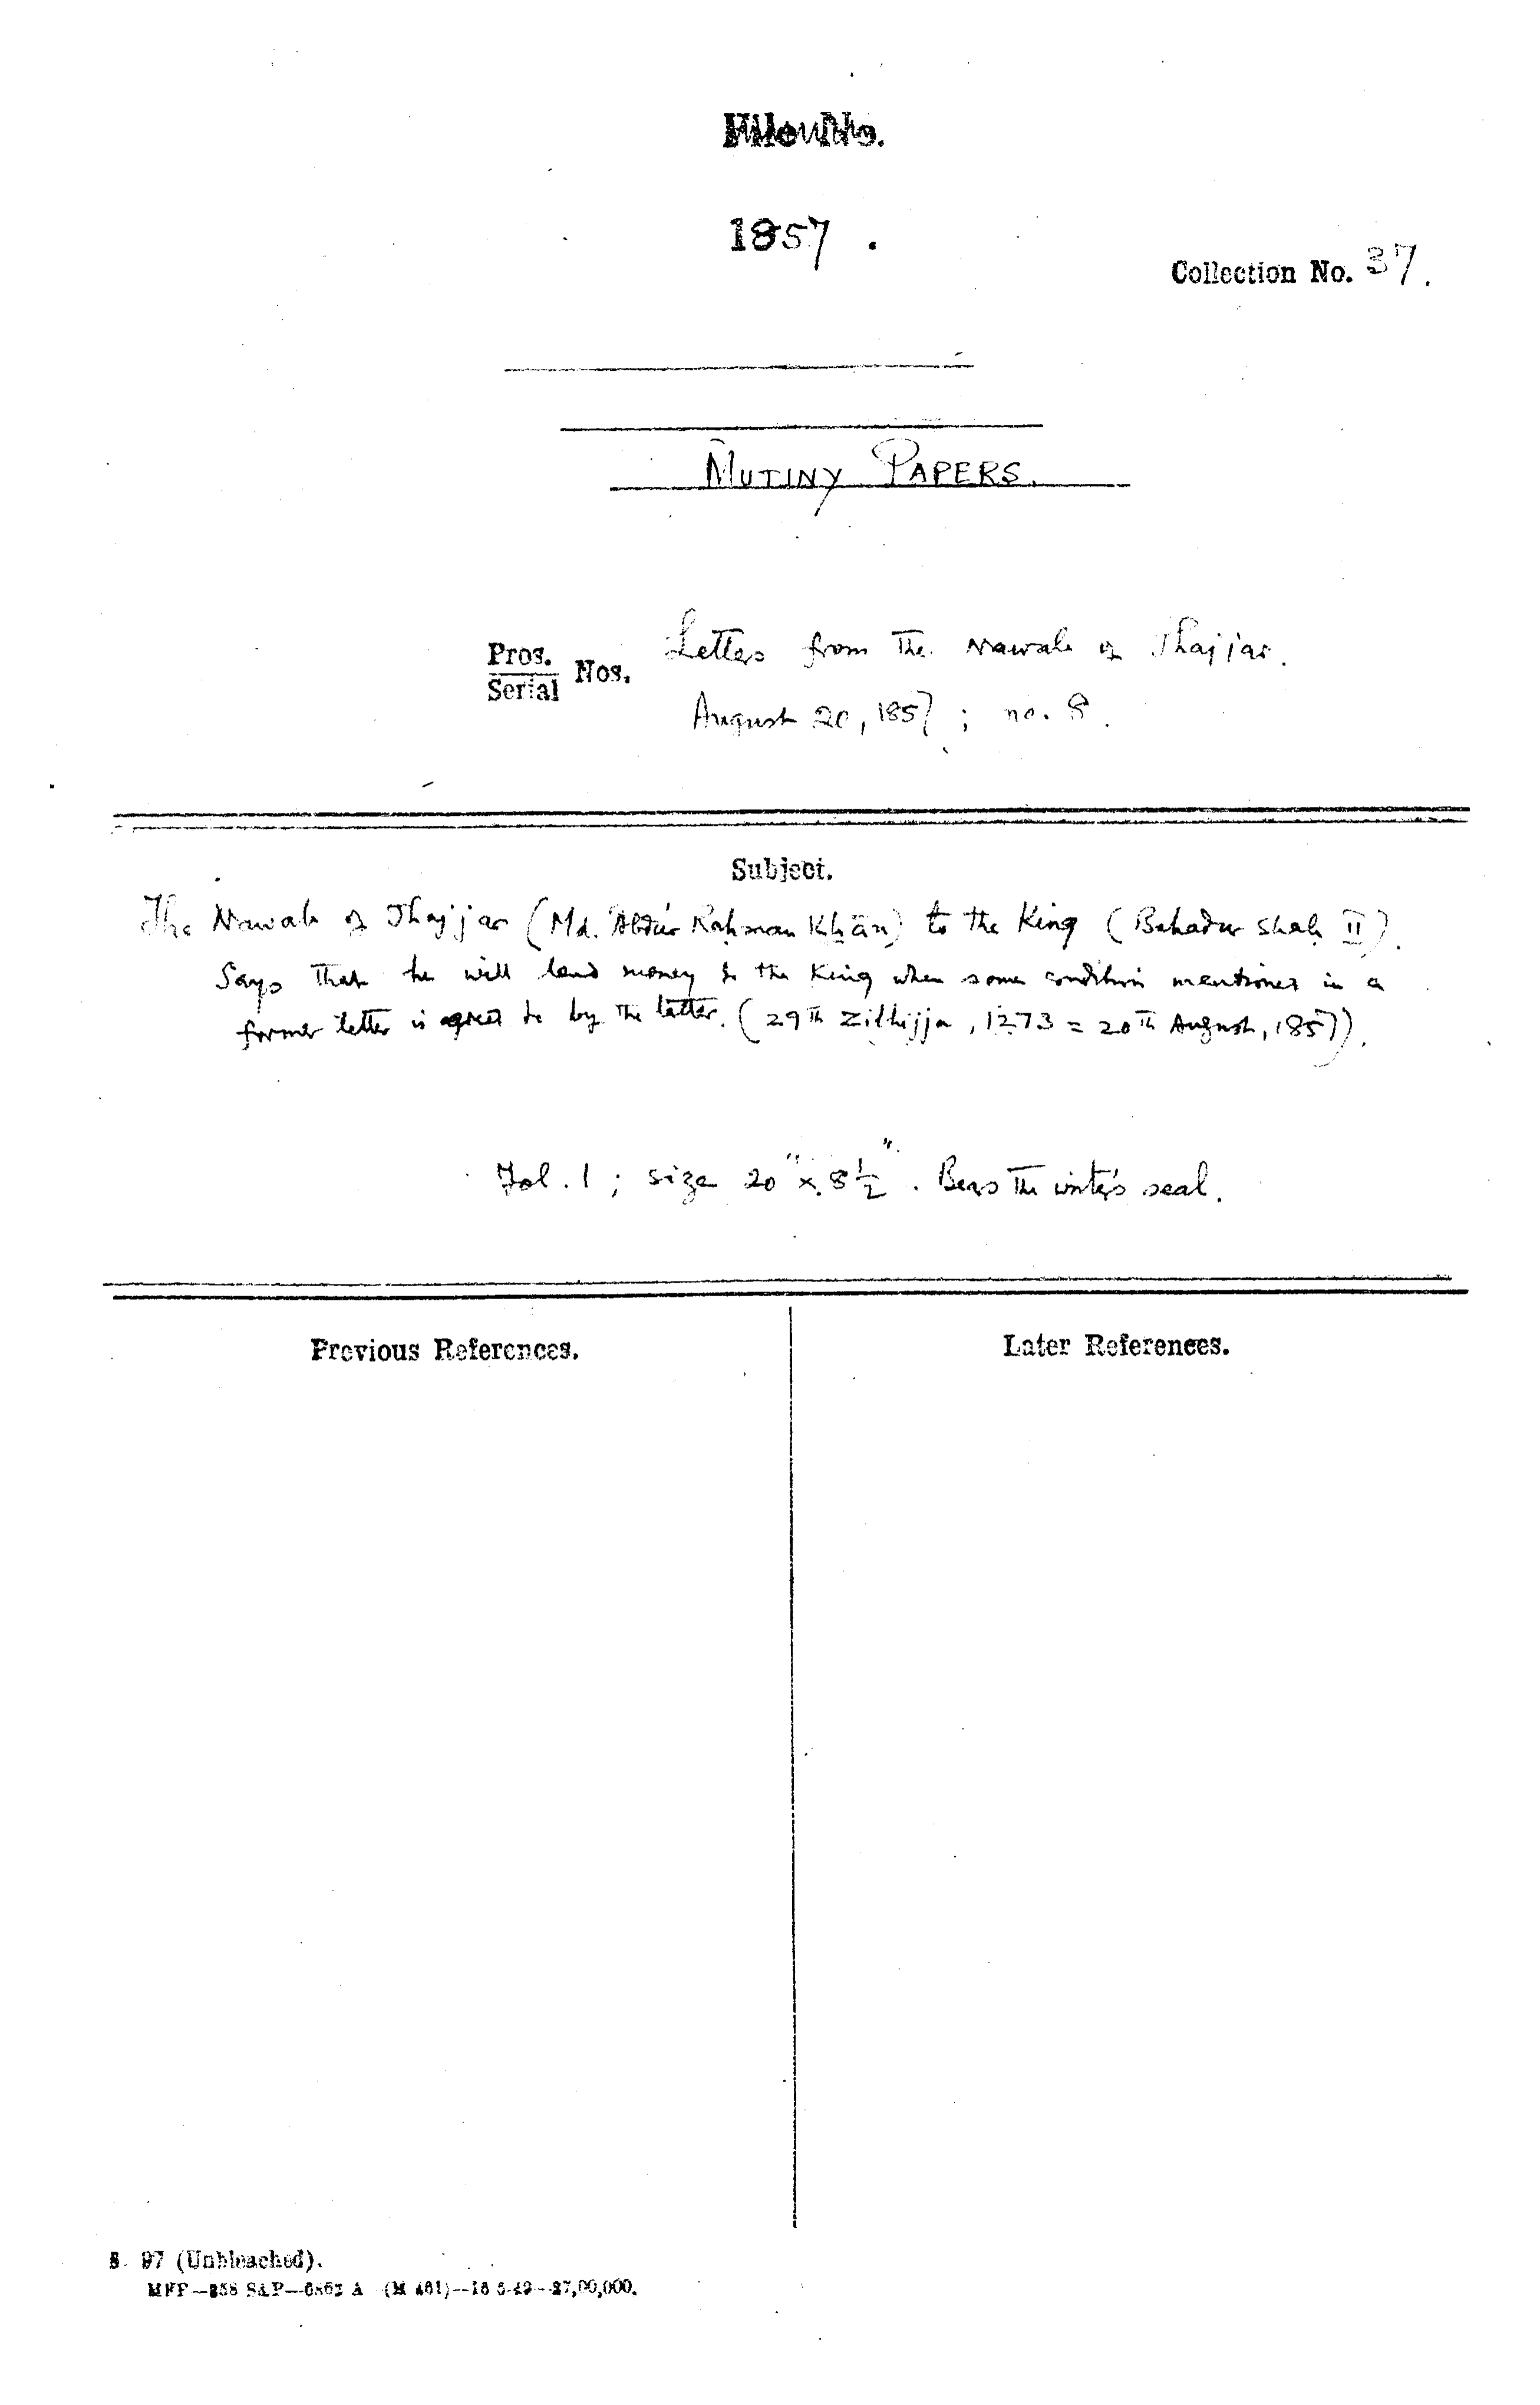 1857.
Collection No. 37.
MUTINY PAPERS.
Pros.
Serial Nos.
Letters from the Nawab of Jhajjar.
August 20, 1857; no. 8.
Subject.
The Nawab of Jhajjar (Md. Abdur Rahman Khān) to the King (Bahadur Shah II).
Says that he will lend money to the King when some condition mentioned in a
former letter is agreed to by the latter. (29th Zilhijja, 1273 = 20th August, 1857).
Fol. 1; size 20" x 8½". Bears the writer's seal.
Previous References.
Later References.
S. 97 (Unbleached).
MFP—358 S&P—6863 A—(M 461)—16-5-49—27,00,000.